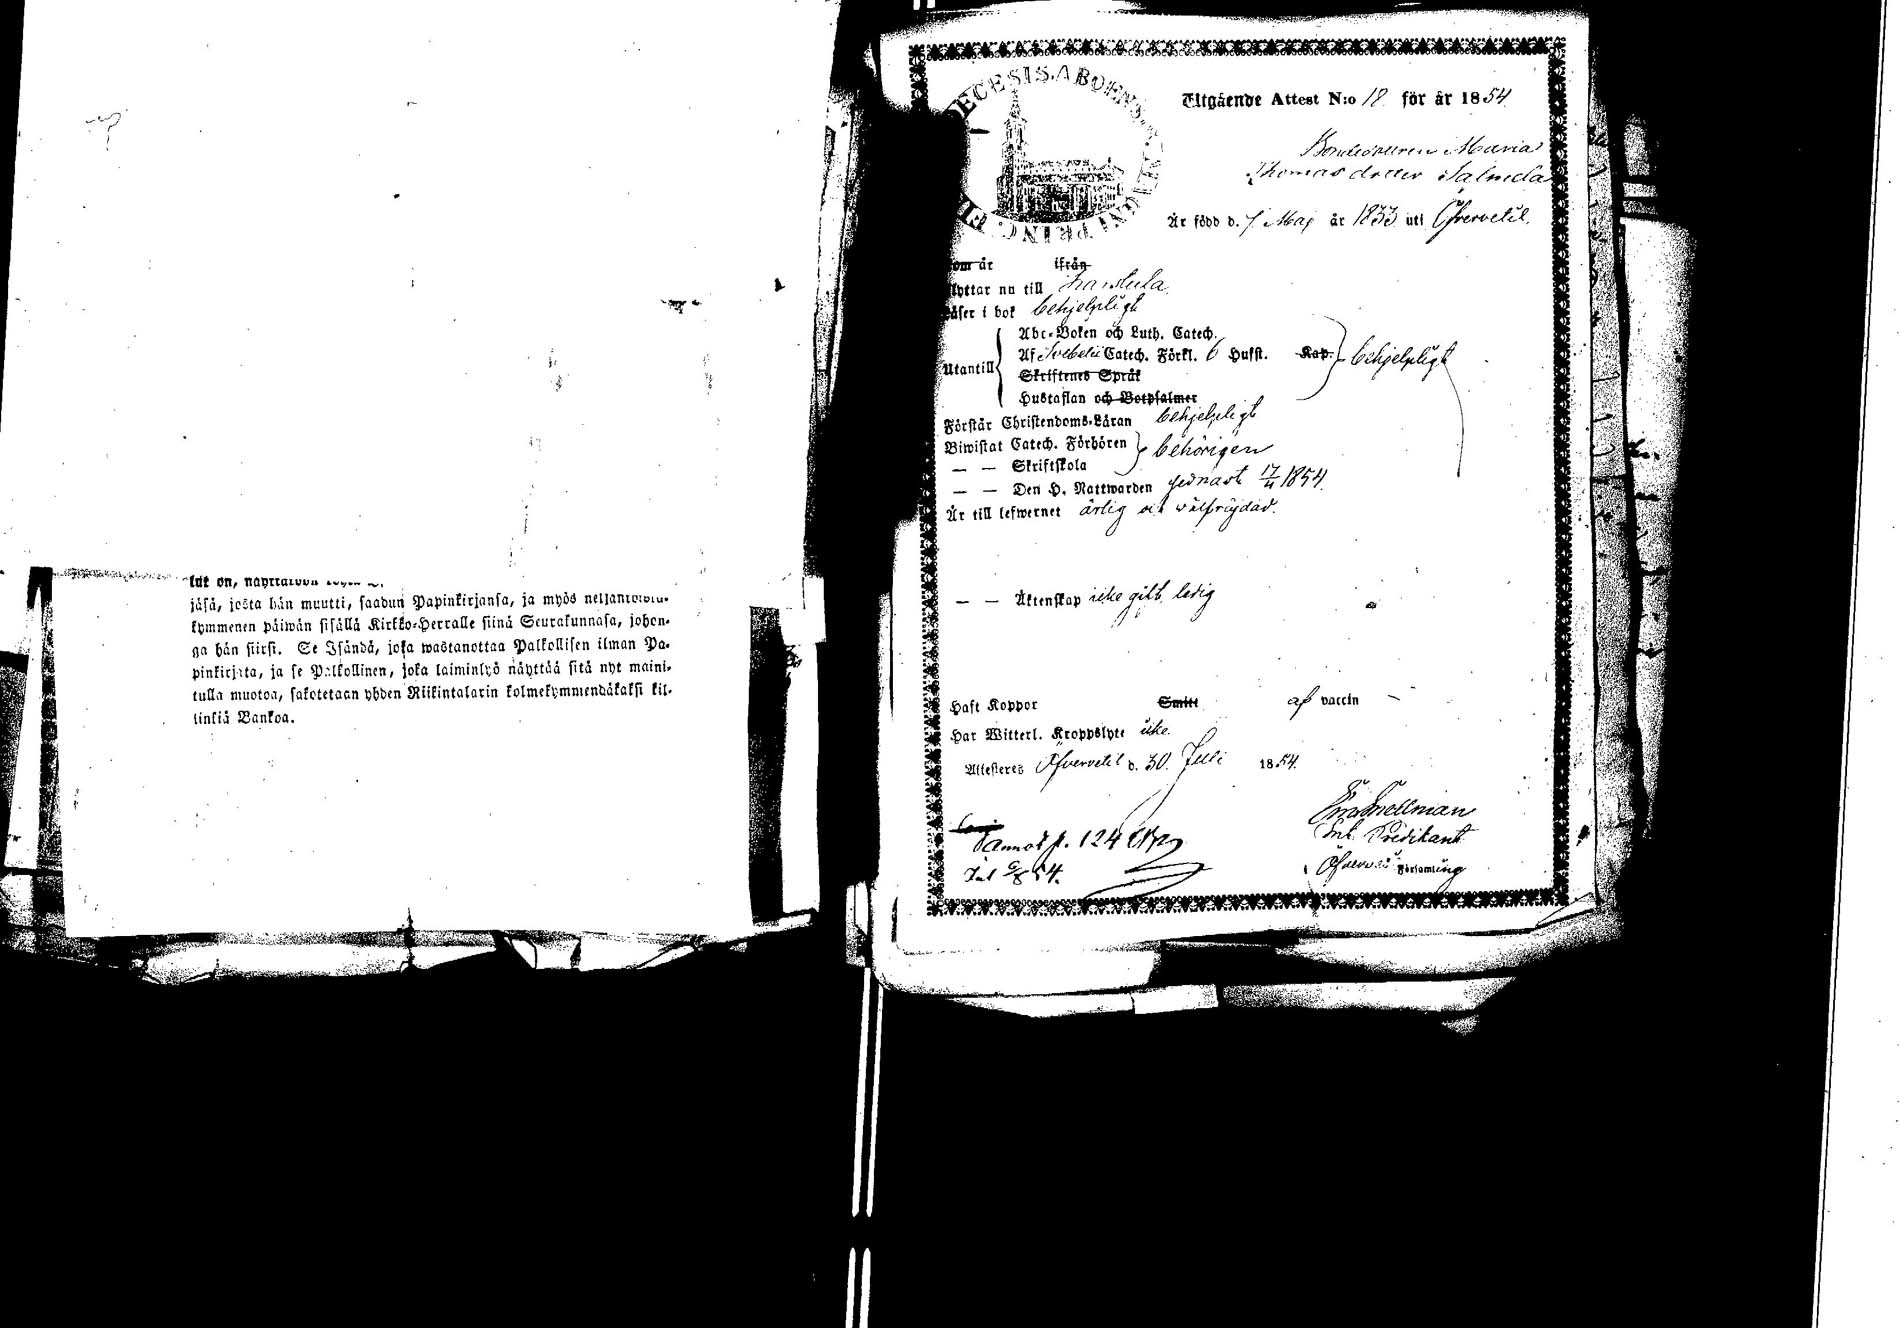 jäsä, josta hän muutti, saadun Papinkirjansa, ja myös neljäntoista-
kymmenen päiwän sisällä Kirkko-Herralle siinä Seurakunnasa, johon-
ga hän siirsi. Se Isändä, joka wastanottaa Palkollisen ilman Pa-
pinkirjata, ja se Palkollinen, joka laiminlyö näyttää sitä nyt maini-
tulla muotoa, sakotetaan yhden Riikintalarin kolmekymmendäkaksi kil-
linkiä Bankoa.
DECESIS. ABOENS
Utgående Attest N:o 18 för år 1854
Maria
Thomas dotter
Är född d. 7 Maj år 1833 uti Öfvervetil.
om är ifrån
lyttar nu till
äser i bok behjelpligt
Abc-Boken och Luth. Catech.
Utantill Af Svebelii Catech. Förkl. 6 Hufst. Kap. behjelpligt
Skriftenes Språk
Hustaflan och Botpsalmer
Förstår Christendoms-Läran behjelpligt
Biwistat Catech. Förhören behörigen
— — Skriftskola
— — Den H. Nattwarden sednast 17/4 1854.
Är till lefwernet ärlig och välfrägdad.
— — Äktenskap icke gift, ledig
Haft Koppor Smitt af vaccin –
Har Witterl. Kroppslyte icke.
Attesteres Öfvervetil d. 30. Juli 1854.
Snellman
Predikant
p. 124
54.
Församling